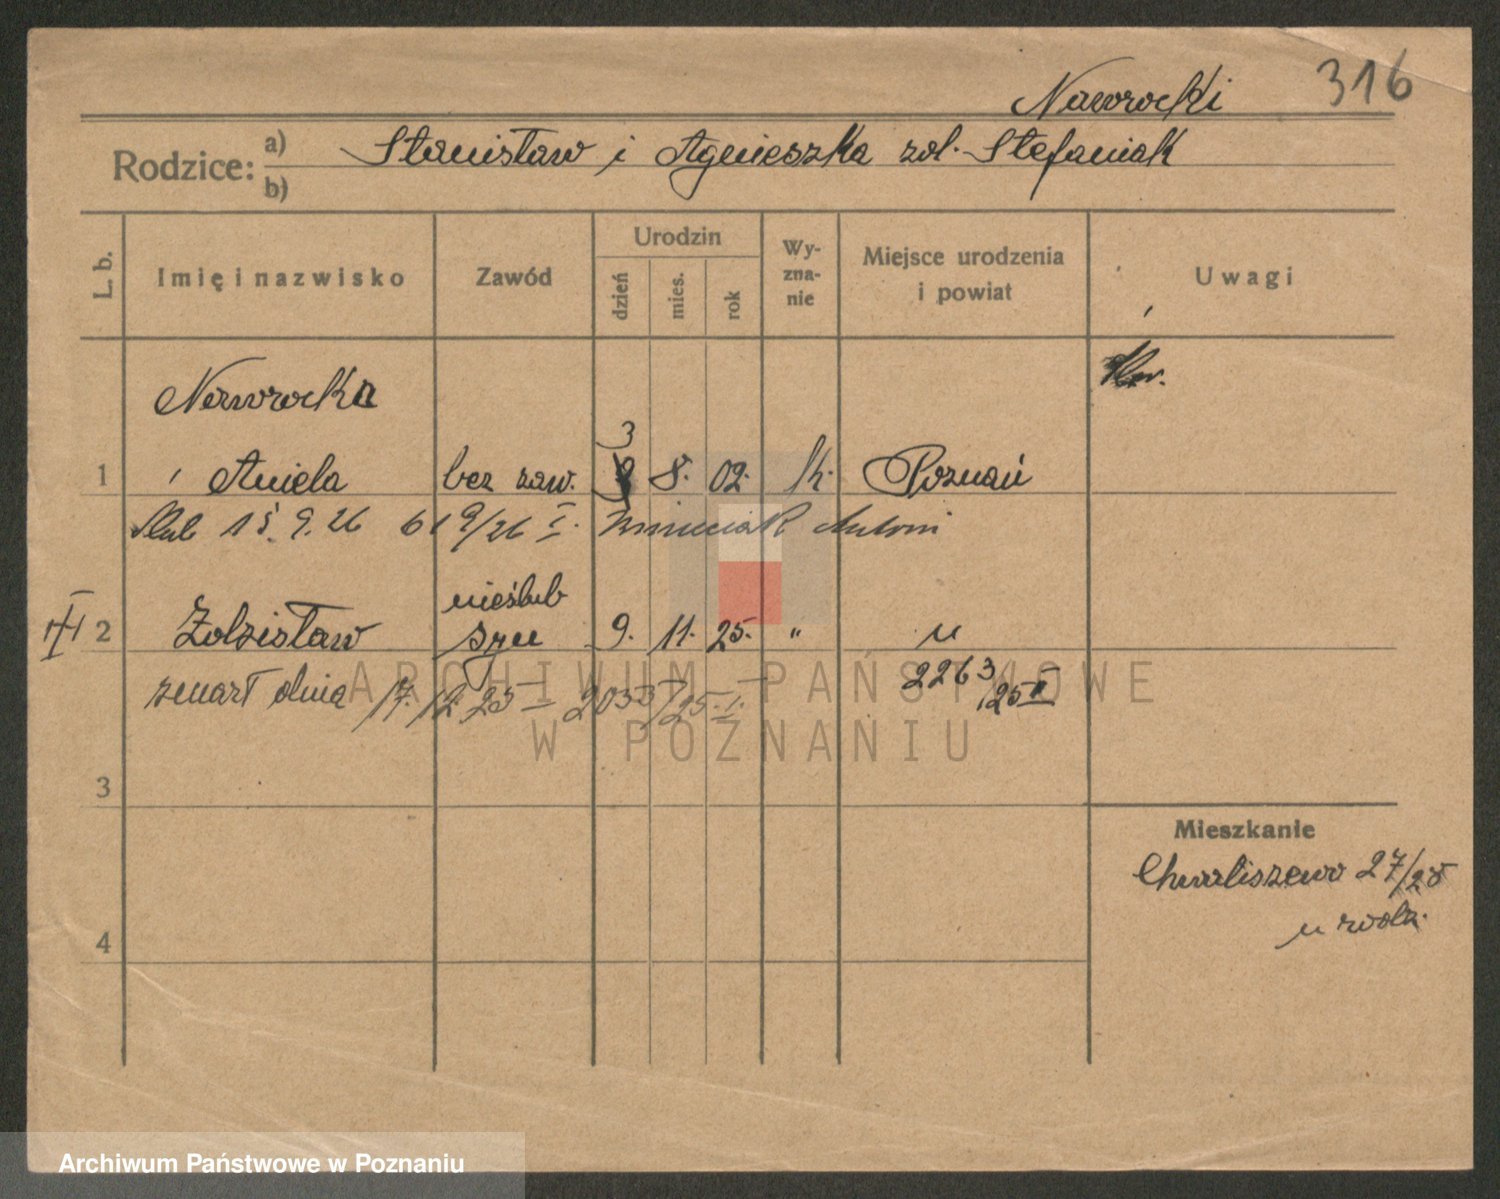 316
Nawrocki
Rodzice: a) Stanisław i Agnieszka zol. Stefaniak
b)
L. b.
Imię i nazwisko
Zawód
Urodzin
dzień
mies.
rok
Wy-
zna-
nie
Miejsce urodzenia
i powiat
Uwagi
Nawrocka
1 Aniela bez zaw. 3 8. 02. k. Poznań
ślub 15. 9. 26 619/26 I. Antoni
nieślub
2 Zdzisław syn 9. 11. 25. " "
2263/25 II
zmarł dnia 17. 12. 25 2055/25. I.
3
Mieszkanie
Chwaliszewo 27/28
u rodz.
4
ARCHIWUM PAŃSTWOWE
W POZNANIU
Archiwum Państwowe w Poznaniu